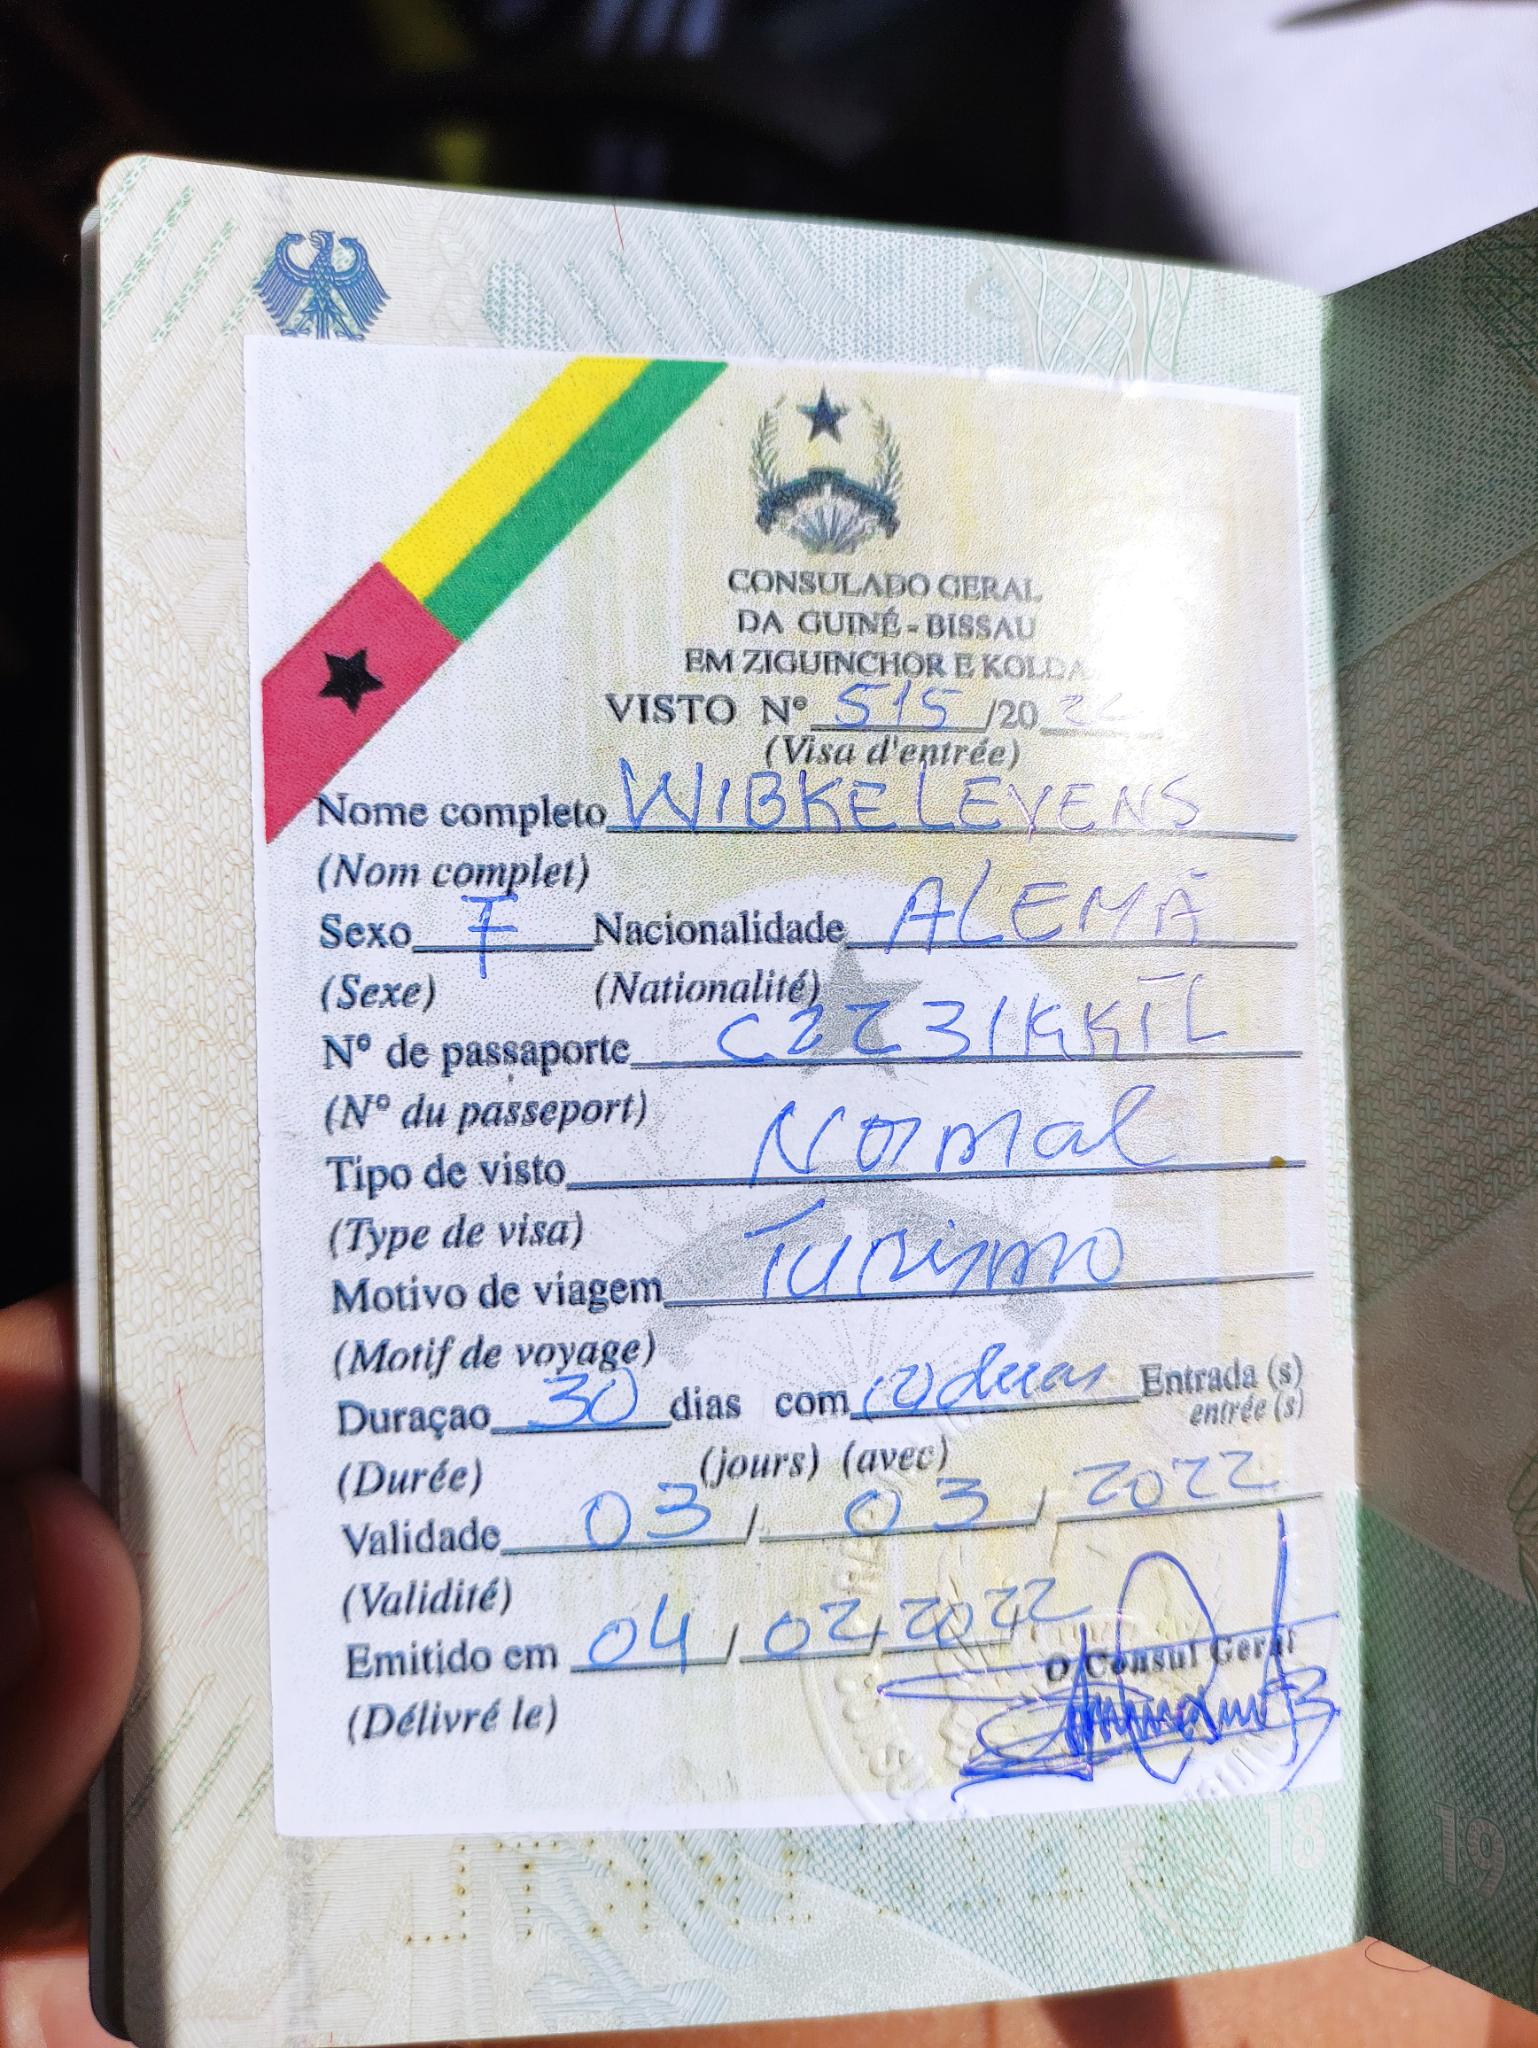 CONSULADO GERAL
DA GUINÉ - BISSAU
EM ZIGUINCHOR E KOLDA
VISTO Nº 515 /20 22
(Visa d'entrée)
Nome completo WIBKE LEVENS
(Nom complet)
Sexo F Nacionalidade ALEMÃ
(Sexe) (Nationalité)
Nº de passaporte
(Nº du passeport)
Tipo de visto Normal
(Type de visa)
Motivo de viagem Turismo
(Motif de voyage)
Duraçao 30 dias com (2) duas Entrada (s)
entrée (s)
(Durée) (jours) (avec)
Validade 03 / 03 / 2022
(Validité)
Emitido em 04 / 02 / 2022
O Consul Geral
(Délivré le)
18
19